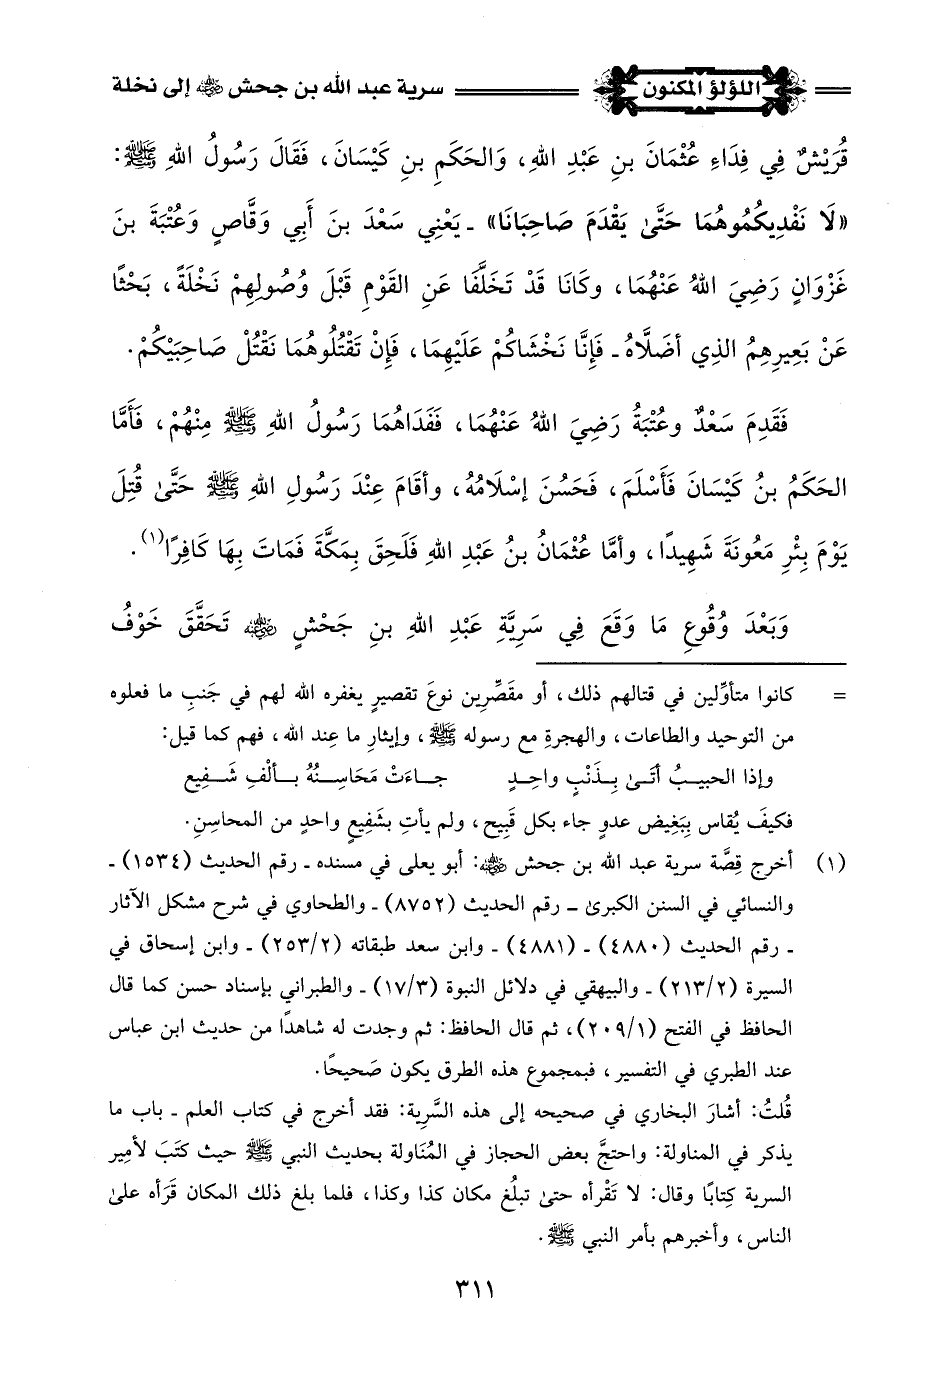 اللؤلؤ المكنون سرية عبد الله بن جحش رضي الله عنه إلى نخلة
قُرَيْشٌ فِي فِدَاءِ عُثْمَانَ بنِ عَبْدِ اللهِ، وَالحَكَمِ بنِ كَيْسَانَ، فَقَالَ رَسُولُ اللهِ ﷺ:
«لَا نَفْدِيكُمُوهُمَا حَتَّى يَقْدَمَ صَاحِبَانَا» ـ يَعْنِي سَعْدَ بنَ أَبِي وَقَّاصٍ وَعُتْبَةَ بنَ
غَزْوَانٍ رَضِيَ اللهُ عَنْهُمَا، وكَانَا قَدْ تَخَلَّفَا عَنِ القَوْمِ قَبْلَ وُصُولِهِمْ نَخْلَةً، بَحْثًا
عَنْ بَعِيرِهِمُ الذِي أضَلَّاهُ ـ فَإِنَّا نَخْشَاكُمْ عَلَيْهِمَا، فَإِنْ تَقْتُلُوهُمَا نَقْتُلْ صَاحِبَيْكُمْ.
فَقَدِمَ سَعْدٌ وعُتْبَةُ رَضِيَ اللهُ عَنْهُمَا، فَفَدَاهُمَا رَسُولُ اللهِ ﷺ مِنْهُمْ، فَأَمَّا
الحَكَمُ بنُ كَيْسَانَ فَأَسْلَمَ، فَحَسُنَ إسْلَامُهُ، وأقَامَ عِنْدَ رَسُولِ اللهِ ﷺ حَتَّى قُتِلَ
يَوْمَ بِئْرِ مَعُونَةَ شَهِيدًا، وأمَّا عُثْمَانُ بنُ عَبْدِ اللهِ فَلَحِقَ بِمَكَّةَ فَمَاتَ بِهَا كَافِرًا(١).
وَبَعْدَ وُقُوعِ مَا وَقَعَ فِي سَرِيَّةِ عَبْدِ اللهِ بنِ جَحْشٍ رضي الله عنه تَحَقَّقَ خَوْفُ
= كانوا متأوِّلين في قتالهم ذلك، أو مقَصِّرين نوعَ تقصيرٍ يغفره الله لهم في جَنبِ ما فعلوه
من التوحيد والطاعات، والهجرةِ مع رسوله ﷺ، وإيثارِ ما عِند الله، فهم كما قيل:
وإذا الحبيبُ أتَى بِذَنْبٍ واحِدٍ جاءَتْ مَحَاسِنُهُ بألْفِ شَفِيع
فكيفَ يُقاس بِبَغِيض عدوٍ جاء بكل قَبِيح، ولم يأتِ بشَفِيعٍ واحدٍ من المحاسِنِ.
(١) أخرج قِصَّة سرية عبد الله بن جحش رضي الله عنه: أبو يعلى في مسنده ـ رقم الحديث (١٥٣٤) ـ
والنسائي في السنن الكبرى ـ رقم الحديث (٨٧٥٢) ـ والطحاوي في شرح مشكل الآثار
ـ رقم الحديث (٤٨٨٠) ـ (٤٨٨١) ـ وابن سعد طبقاته (٢/٢٥٣) ـ وابن إسحاق في
السيرة (٢/٢١٣) ـ والبيهقي في دلائل النبوة (٣/١٧) ـ والطبراني بإسناد حسن كما قال
الحافظ في الفتح (١/٢٠٩)، ثم قال الحافظ: ثم وجدت له شاهدًا من حديث ابن عباس
عند الطبري في التفسير، فبمجموع هذه الطرق يكون صَحيحًا.
قُلتُ: أشارَ البخاري في صحيحه إلى هذه السَّرية: فقد أخرج في كتاب العلم ـ باب ما
يذكر في المناولة: واحتجَّ بعض الحجاز في المُنَاولة بحديث النبي ﷺ حيث كتَبَ لأمِير
السرية كِتابًا وقال: لا تَقْرأه حتى تبلُغ مكان كذا وكذا، فلما بلغ ذلك المكان قَرَأه على
الناس، وأخبرهم بأمر النبي ﷺ.
٣١١